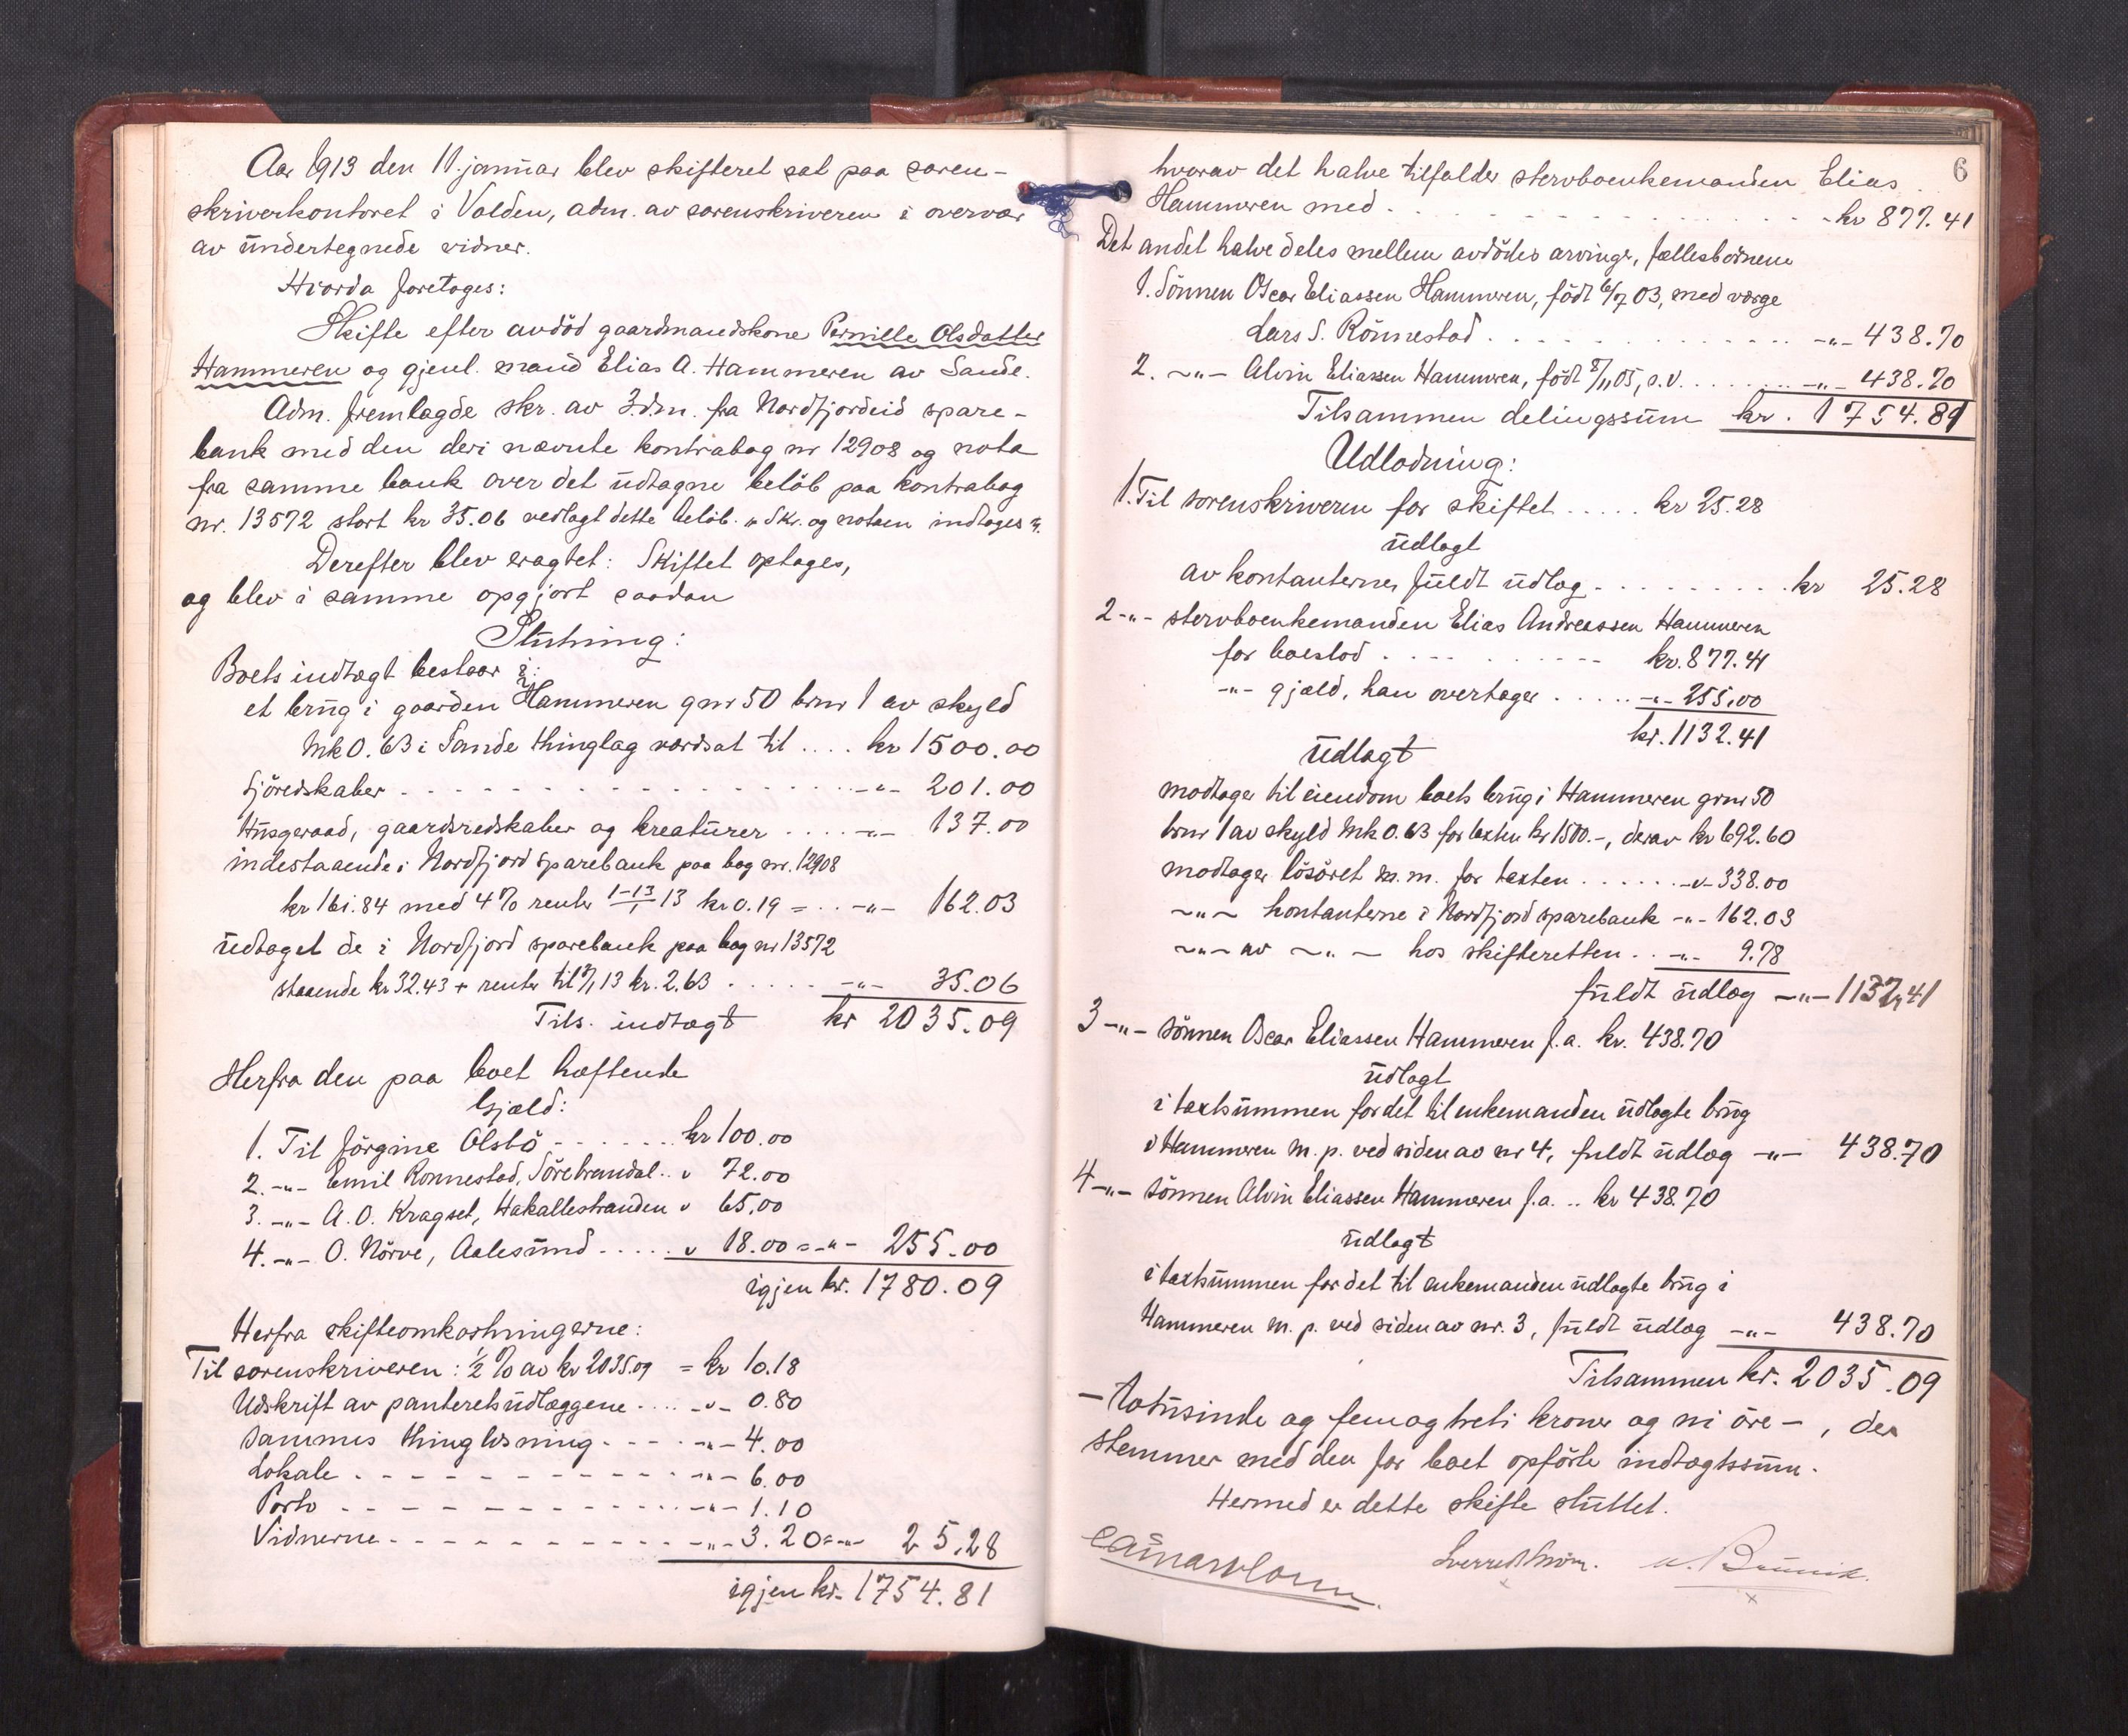 Aar 1913 den 11. januar blev skifteret sat paa soren-
skriverkontoret i Volden, adm. av sorenskriveren i overvær
av undertegnede vidner.
Hvorda foretoges:
Skifte efter avdöd gaardmandskone Pernille Olsdatter
Hammeren og gjenl. mand Elias A. Hammeren av Sande.
Adm. fremlagde skr. av 3 dm. fra Nordfjordeid spare-
bank med den deri nævnte kontrabog nr 12908 og nota
fra samme bank over det udtagne belöb paa kontrabog
nr. 13572 stort kr 35.06 vedlagt dette belöb. „ Skr. og notaen indtages “.
Derefter blev eragtet: Skiftet optages,
og blev i samme opgjort saadan
Slutning:
Boets indtægt bestaar i:
et brug i gaarden Hammeren gnr 50 brnr 1 av skyld
Mk 0.63 i Sande thinglag værdsat til .... kr 1500.00
Sjöredskaber - - - -"- 201.00
Husgeraad, gaardsredskaber og kreaturer .... -"- 137.00
indestaaende i Nordfjord sparebank paa bog nr. 12908
kr 161.84 med 4% renter 1-13/1 13 kr 0.19 = .. -"- 162.03
udtaget de i Nordfjord sparebank paa bog nr 13572
staaende kr 32.43 + renter til 3/1 13 kr. 2.63 ..... -"- 35.06
Tils. indtægt kr 2035.09
Herfra den paa boet hæftende
Gjæld:
1. Til Jörgine Olsbö - ...... kr 100.00
2. -"- Emil Rönnestad, Sörebrandal .. " 72.00
3. -"- A. O. Kragset, Hakallestranden " 65.00
4. -"- O. Nörve, Aalesund ..... " 18.00 = -"- 255.00
igjen kr. 1780.09
Herfra skifteomkostningerne:
Til sorenskriveren: 1/2 % av kr 2035.09 = kr 10.18
Udskrift av panteretsudlæggene .... -"- 0.80
Sammes thinglæsning - - - -"- 4.00
Lokale - - - - -"- 6.00
Porto - - - - -"- 1.10
Vidnerne - - - - -"- 3.20 = -"- 25.28
igjen kr. 1754.81
6
hvorav det halve tilfalder stervboenkemanden Elias
Hammeren med - - - - kr 877.41
Det andet halve deles mellem avdödes arvinge, fællesbörnene
1. Sönnen Oscar Eliassen Hammeren, födt 6/7 03, med værge
Lars S. Rönnestad ..... -"- 438.70
2. -"- Alvin Eliassen Hammeren, födt 8/11 05, s.v. ..... -"- 438.70
Tilsammen delingssum kr. 1754.81
Udlodning:
1. Til sorenskriveren for skiftet ..... kr 25.28
udlagt
av kontanterne, fuldt udlæg - - - - kr 25.28
2 -"- stervboenkemanden Elias Andreassen Hammeren
for boeslod - - - - kr. 877.41
-"- gjæld, han overtager ..... -"- 255.00
kr. 1132.41
udlagt
modtager til eiendom boets brug i Hammeren grnr 50
brnr 1 av skyld Mk 0.63 for taxten kr 1500.-, derav kr 692.60
modtager lösöret m.m. for taxten ...... -"- 338.00
-"- kontanterne i Nordfjord sparebank -"- 162.03
-"- av -"- hos skifteretten .. -"- 9.78
fuldt udlæg -"- 1132,41
3 -"- sönnen Oscar Eliassen Hammeren f.a. kr. 438.70
udlagt
i taxtsummen for det til enkemanden udlagte brug
i Hammeren m. p. ved siden av nr 4, fuldt udlæg -"- 438.70
4 -"- sönnen Alvin Eliassen Hammeren f.a. .. kr 438.70
udlagt
i taxtsummen for det til enkemanden udlagte brug i
Hammeren m. p. ved siden av nr. 3, fuldt udlæg -"- 438.70
Tilsammen kr. 2035.09
- totusinde og femogtreti kroner og ni öre -, der
stemmer med den for boet opförte indtægtssum.
Hermed er dette skifte sluttet.